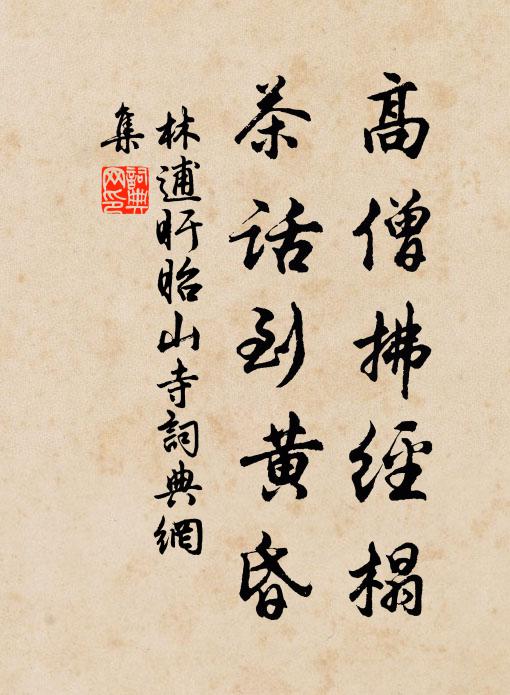 高僧拂經榻
茶話到黄昏
林逋盱眙山寺詞典網
集
詞典
网印